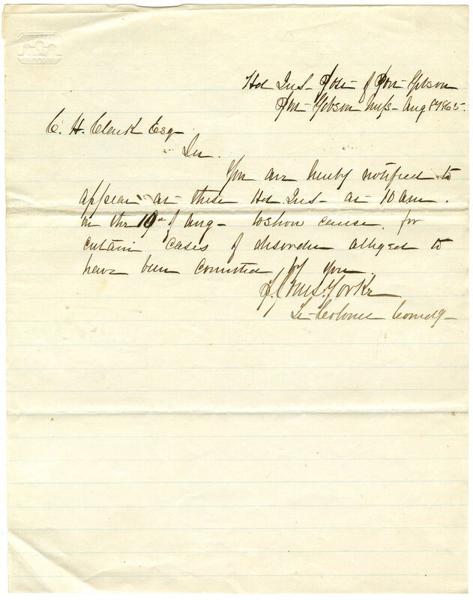 Hd Qrs Post of Port Gibson
Port Gibson Miss Aug 8 1865
C. H. Clark Esq
Sir
You are hereby notified to
appear at these Hd Qrs at 10 am.
on the 10th of Aug to show cause for
certain cases of disorder alleged to
have been committed by you
Yorke
Lt Colonel Comdg